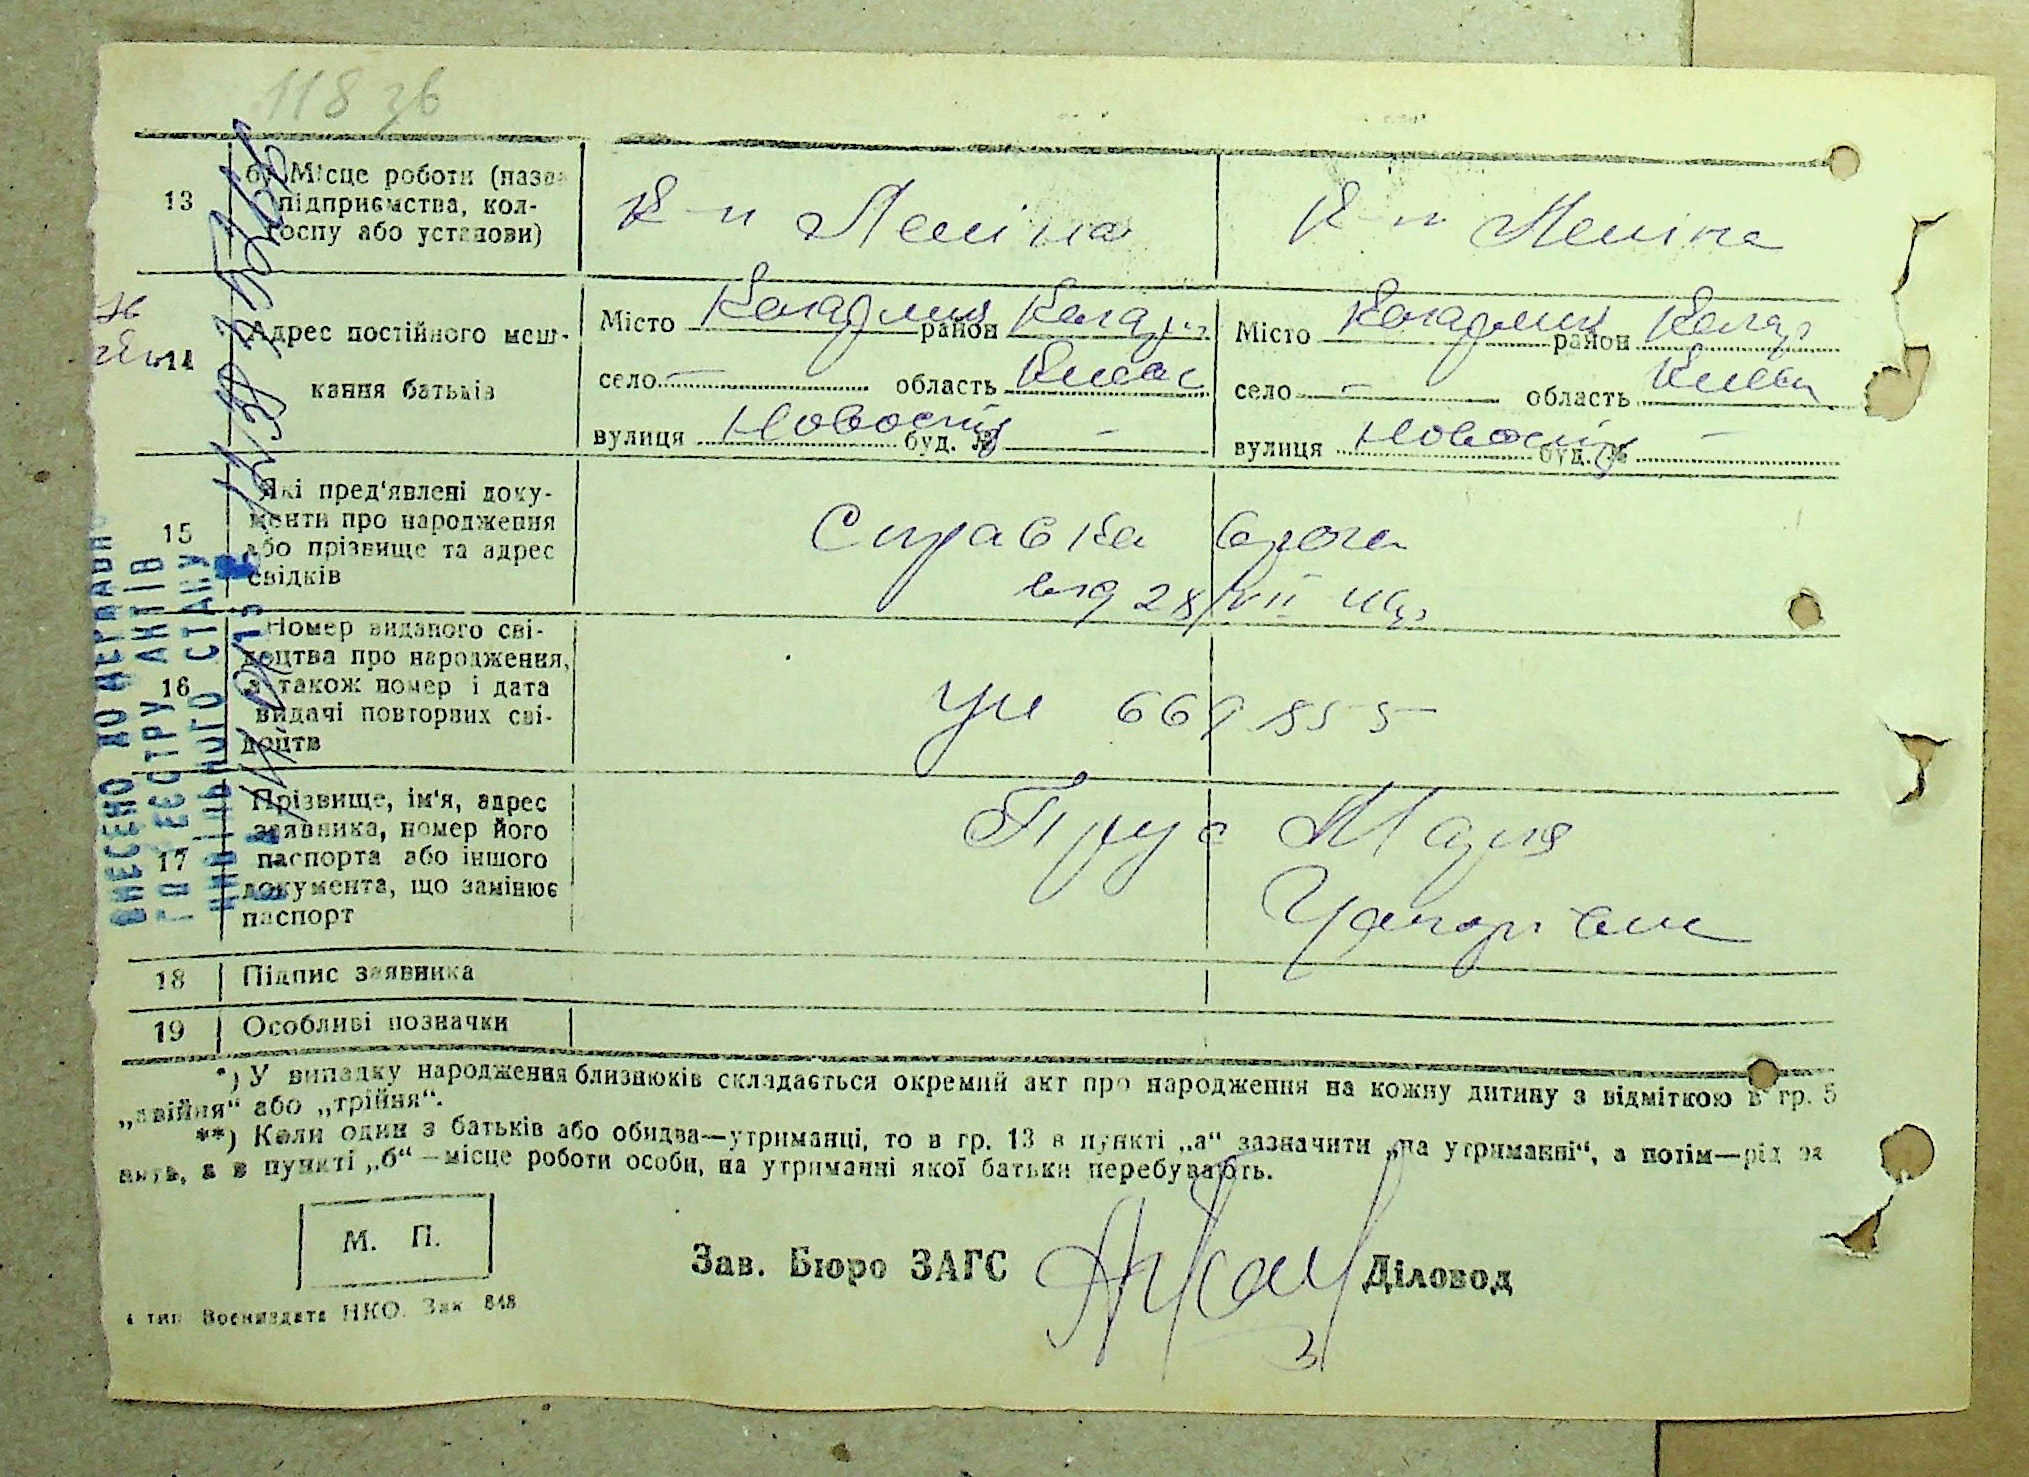 118 зв
13
б) Місце роботи (назва
підприємства, кол-
госпу або установи)
К-п Леніна
К-п Леніна
14
Адрес постійного меш-
кання батьків
Місто Кагарлик район Кагарл.
село — область Київс
вулиця буд. № —
Місто Кагарлик район Кагар
село — область Київ
вулиця буд. № —
15
Які пред'явлені доку-
менти про народження
або прізвище та адрес
свідків
Справка
від 28/VII
16
Номер виданого сві-
доцтва про народження,
а також номер і дата
видачі повторних сві-
доцтв
669855
17
Прізвище, ім'я, адрес
заявника, номер його
паспорта або іншого
документа, що замінює
паспорт
Прус Марія
18
Підпис заявника
19
Особливі позначки
*) У випадку народження близнюків складається окремий акт про народження на кожну дитину з відміткою в гр. 5
„двійня“ або „трійня“.
**) Коли один з батьків або обидва—утриманці, то в гр. 13 в пункті „а“ зазначити „на утриманні“, а потім—рід за
нять, а в пункті „б“—місце роботи особи, на утриманні якої батьки перебувають.
М. П.
Зав. Бюро ЗАГС
Діловод
4 тип Воениздата НКО. Зак 848
ВНЕСЕНО ДО ДЕРЖАВНО
ГО РЕЄСТРУ АКТІВ
ЦИВІЛЬНОГО СТАНУ